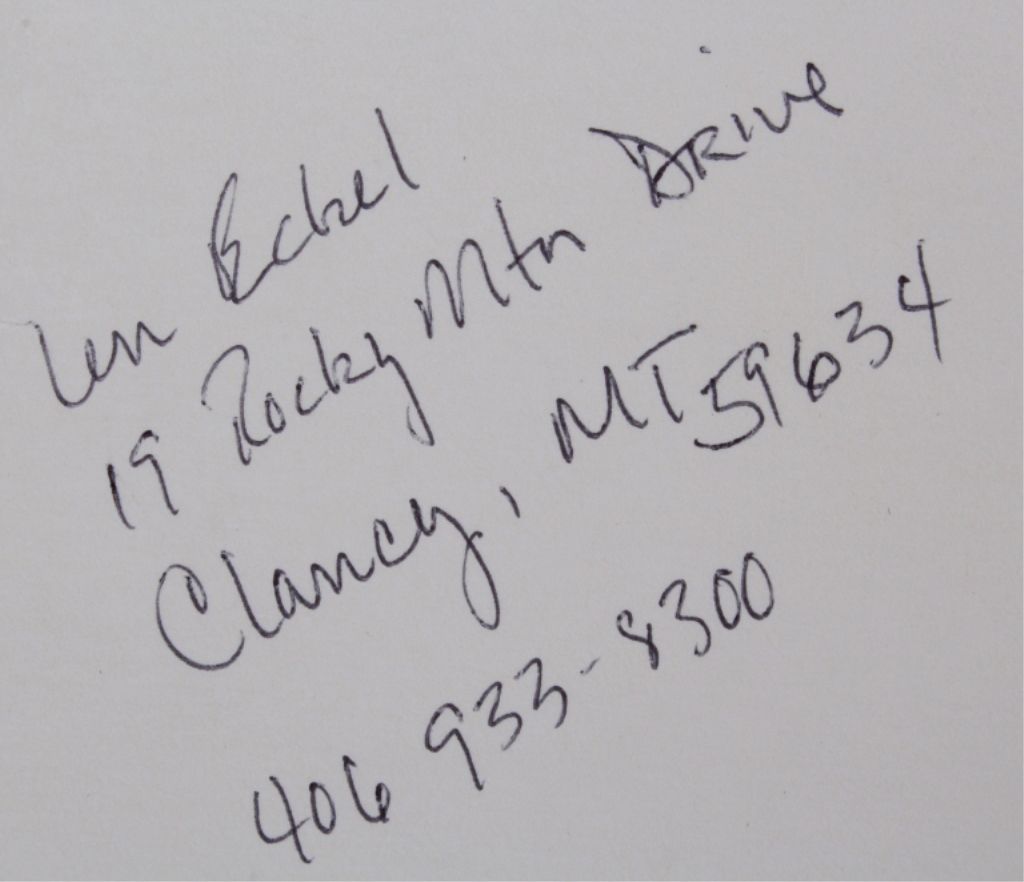 Len Eckel
19 Rocky Mtn Drive
Clancy, MT 59634
406 933-8300